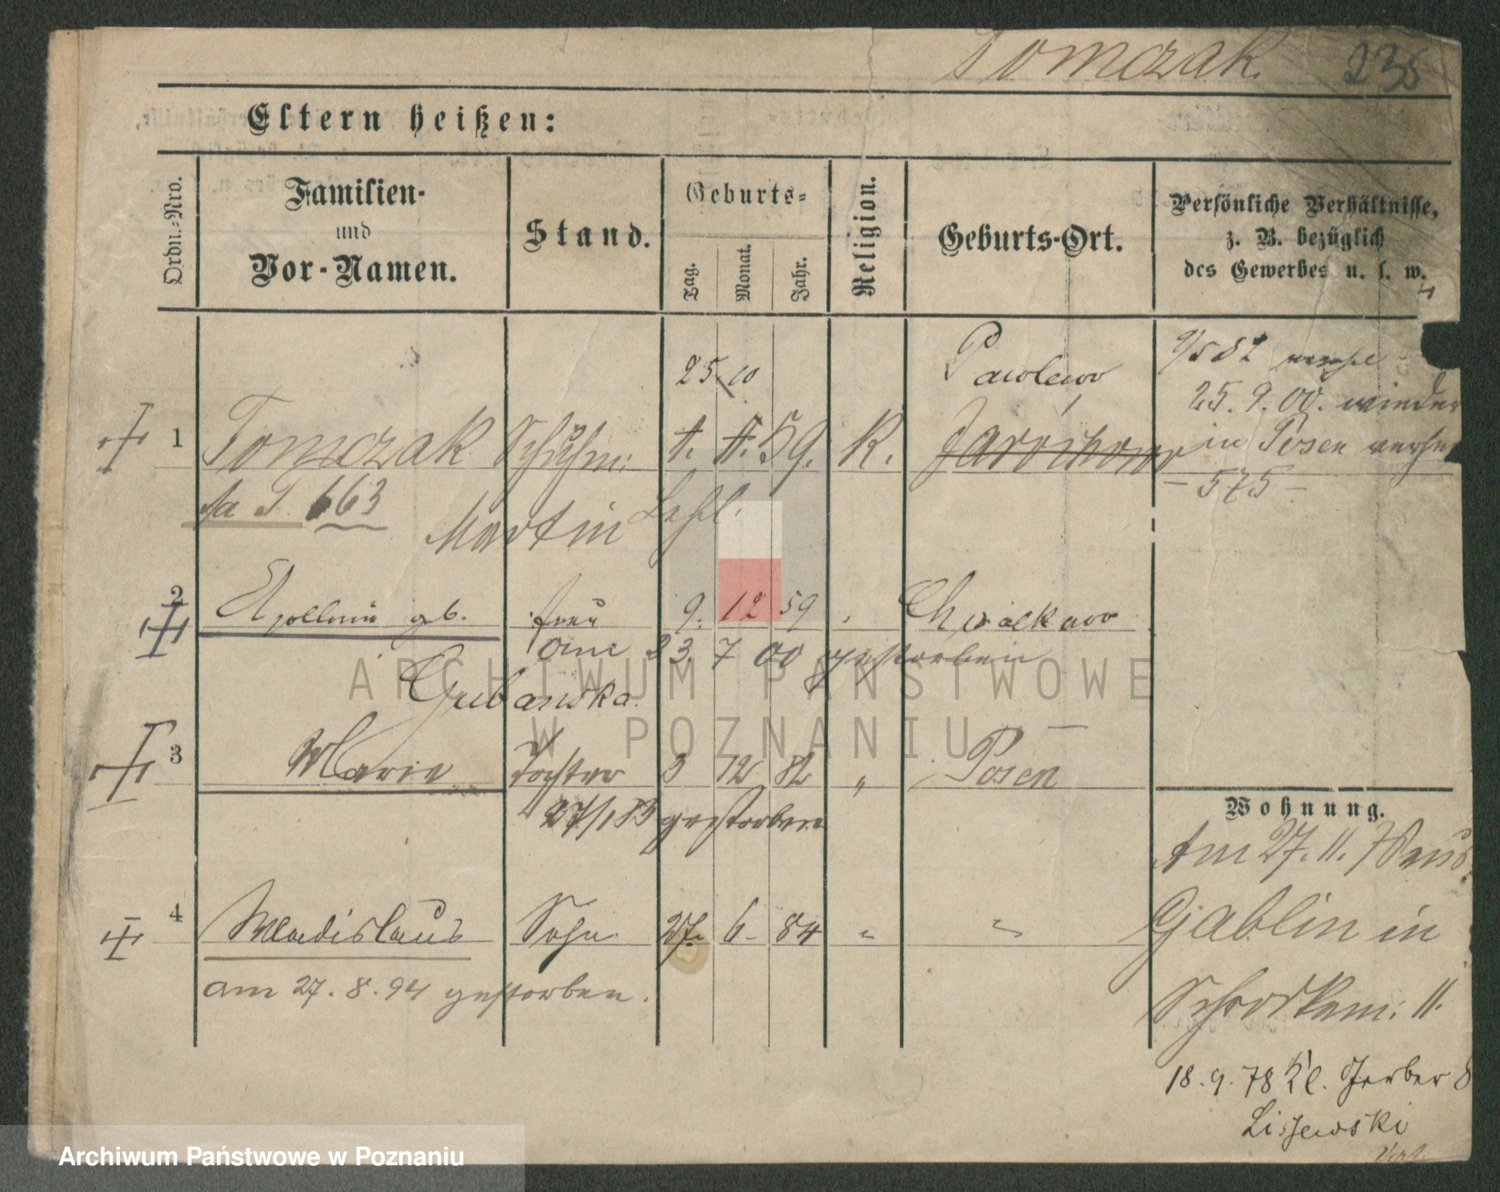 Tomczak. 236
Eltern heißen:
Ordn.-Nro.
Familien-
und
Vor-Namen.
Stand.
Geburts-
Tag.
Monat.
Jahr.
Religion.
Geburts-Ort.
Persönliche Verhältnisse,
z. B. bezüglich
des Gewerbes u. s. w.
25. 10 Pawlowo
25. 9. 00. wieder
1 Tomczak Schuhm. 59. K. in Posen
663 - 575 -
Martin
2 Apollonia geb. Frau 9. 12 59
23 7 00 gestorben
Gubanska
3 Marie Tochter 3 12 82 " Posen
27/1 83 gestorben
4 Wladislaus Sohn 27. 6. 84 " "
am 27. 8. 94 gestorben.
Wohnung.
Am 27. 11. 78 aus
Gablin in
Schrodkam: 11.
18. 9. 78 Kl. Gerber 8
Lissewski
ARCHIWUM PAŃSTWOWE
W POZNANIU
Archiwum Państwowe w Poznaniu